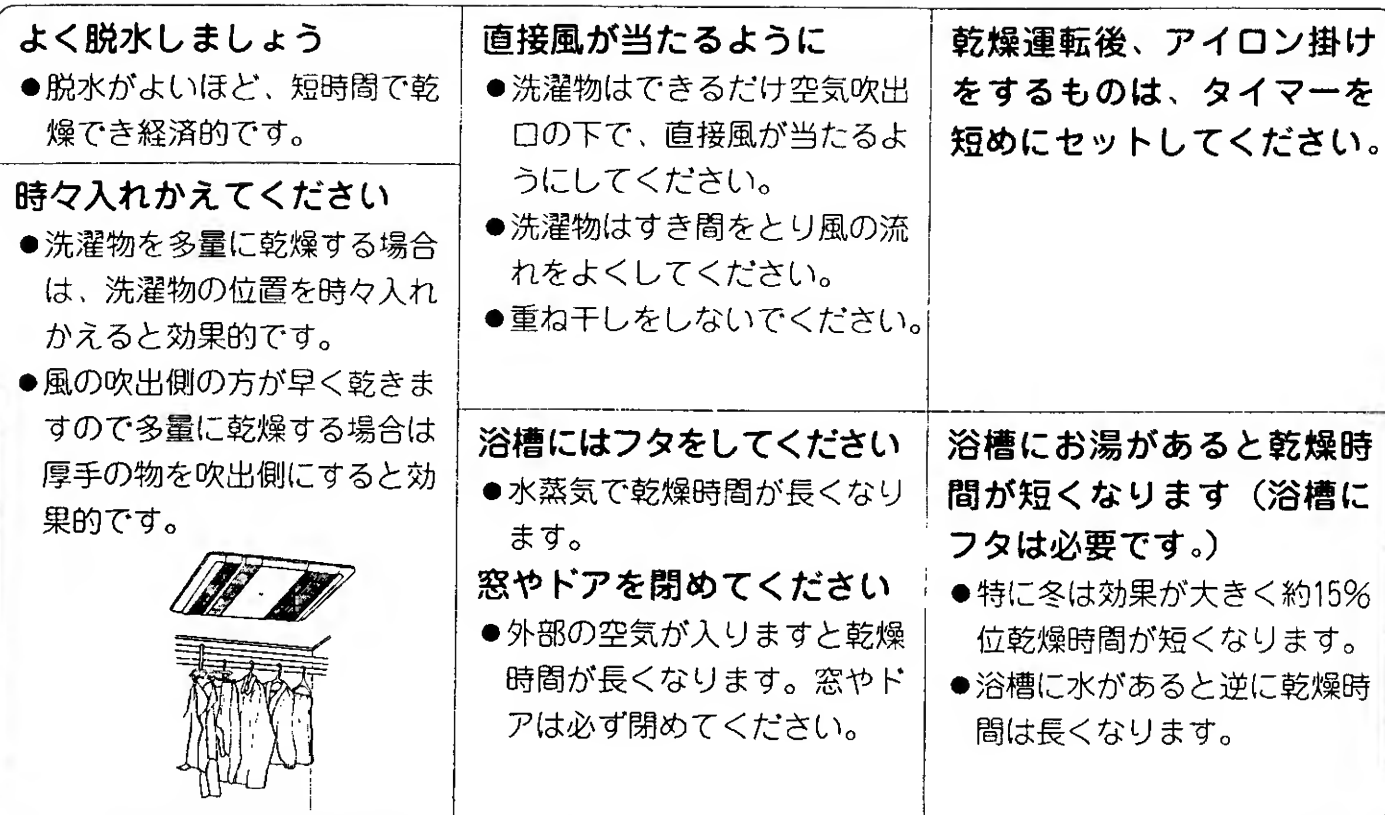 よく脱水しましょう
●脱水がよいほど、短時間で乾
燥でき経済的です。
時々入れかえてください
●洗濯物を多量に乾燥する場合
は、洗濯物の位置を時々入れ
かえると効果的です。
●風の吹出側の方が早く乾きま
すので多量に乾燥する場合は
厚手の物を吹出側にすると効
果的です。
直接風が当たるように
●洗濯物はできるだけ空気吹出
口の下で、直接風が当たるよ
うにしてください。
●洗濯物はすき間をとり風の流
れをよくしてください。
●重ね干しをしないでください。
浴槽にはフタをしてください
●水蒸気で乾燥時間が長くなり
ます。
窓やドアを閉めてください
●外部の空気が入りますと乾燥
時間が長くなります。窓やド
アは必ず閉めてください。
乾燥運転後、アイロン掛け
をするものは、タイマーを
短めにセットしてください。
浴槽にお湯があると乾燥時
間が短くなります（浴槽に
フタは必要です。）
●特に冬は効果が大きく約15%
位乾燥時間が短くなります。
●浴槽に水があると逆に乾燥時
間は長くなります。